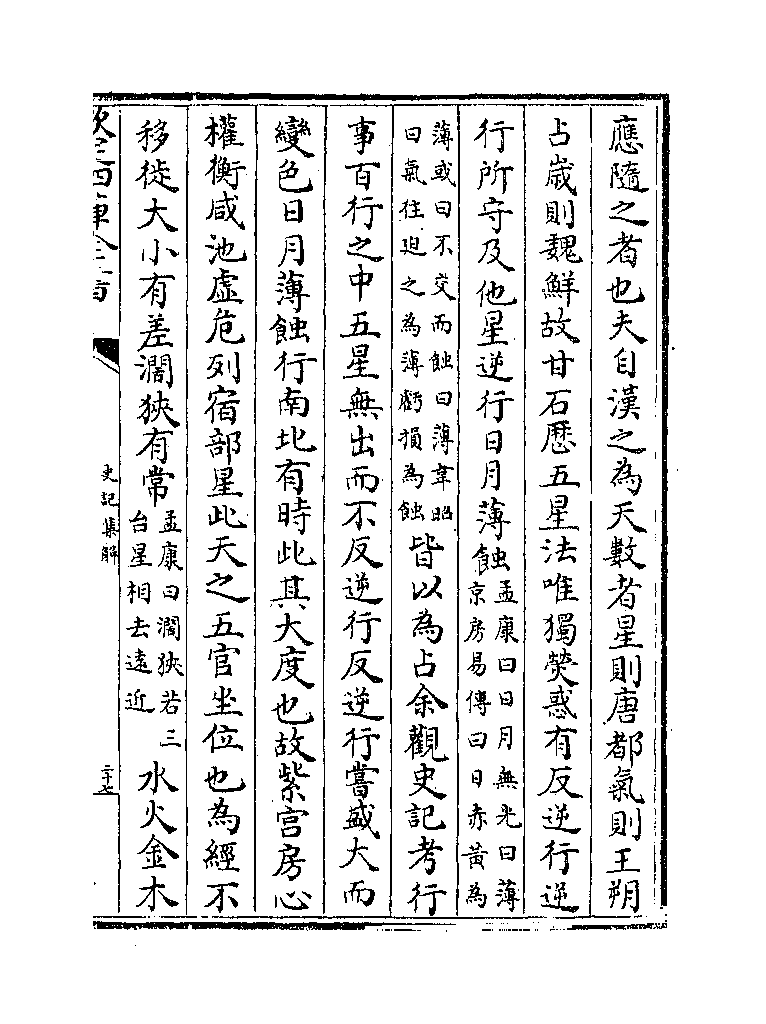 應隨之者也夫自漢之為天數者星則唐都氣則王朔
占歲則魏鮮故甘石厯五星法唯獨熒惑有反逆行逆
行所守及他星逆行日月薄蝕孟康曰日月無光曰薄
京房易傳曰日赤黃為
薄或曰不交而蝕曰薄韋昭
曰氣往迫之為薄虧損為蝕皆以為占余觀史記考行
事百行之中五星無出而不反逆行反逆行嘗盛大而
變色日月薄蝕行南北有時此其大度也故紫宫房心
權衡咸池虛危列宿部星此天之五官坐位也為經不
移徙大小有差濶狹有常孟康曰濶狹若三
台星相去遠近水火金木
欽定四庫全書
史記集解
二十七